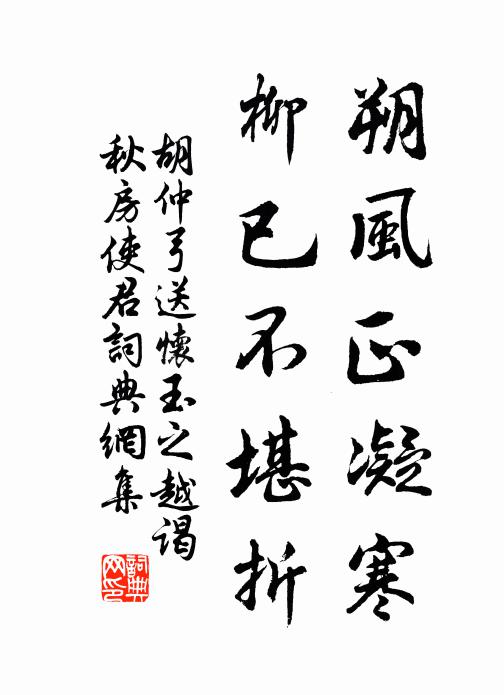 朔風正凝寒
柳已不堪折
胡仲弓送懷玉之越謁
秋房使君詞典網集
詞典
网印